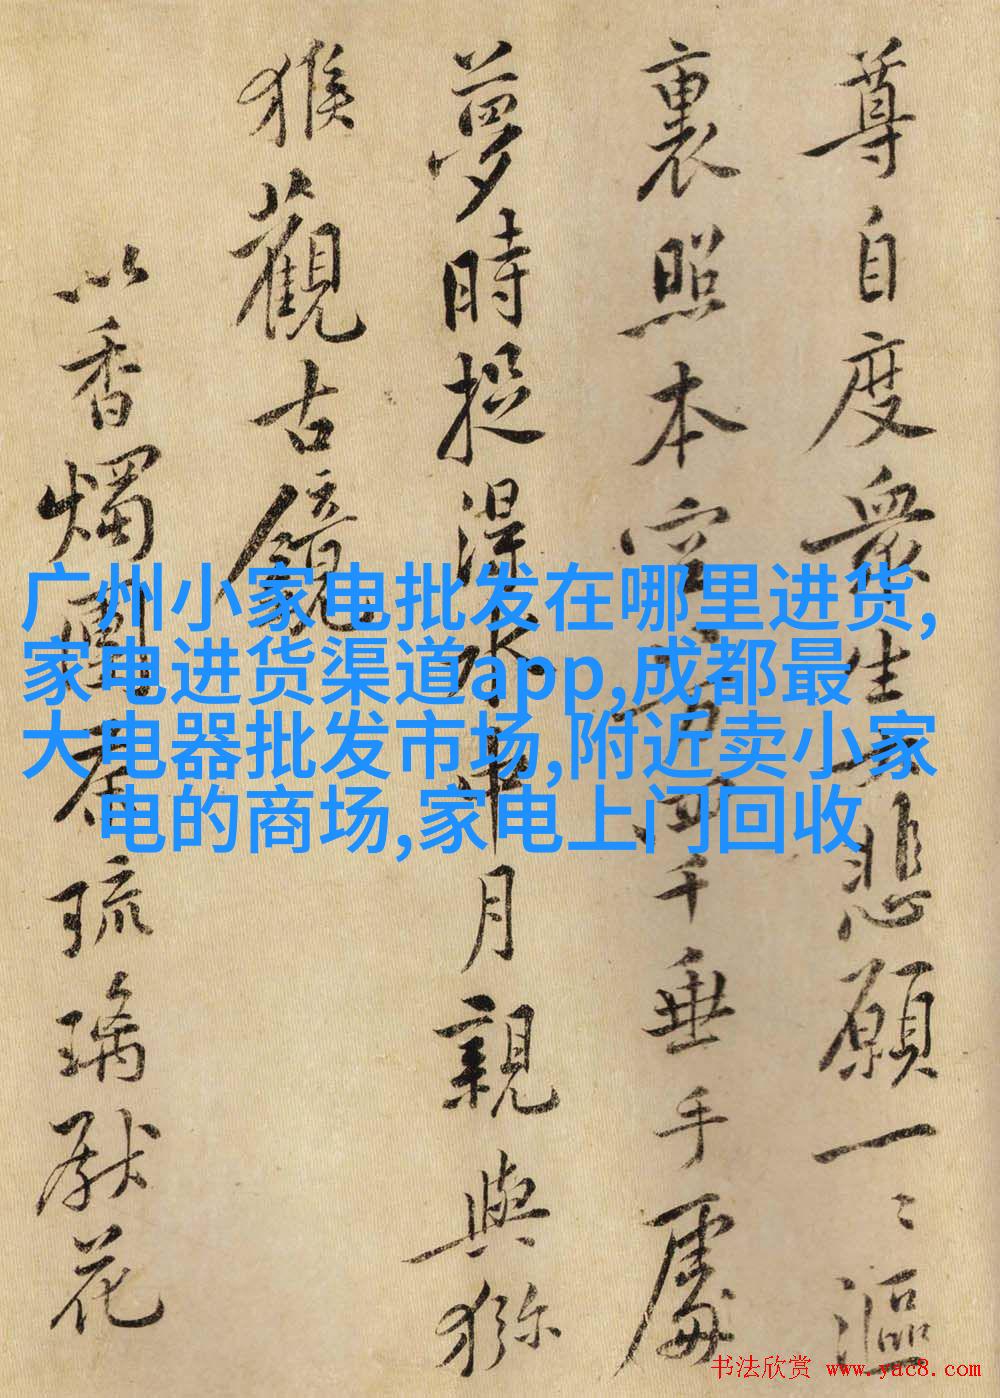 尊自度衆生大悲願一〻漚
裏照本空八万四千垂手處
夢時捉得水中月親與獼
猴觀古鏡
以香燭團茶琉璃獻花
广州小家电批发在哪里进货,
家电进货渠道app,成都最
大电器批发市场,附近卖小家
电的商场,家电上门回收
书法欣赏 www.yac8.com